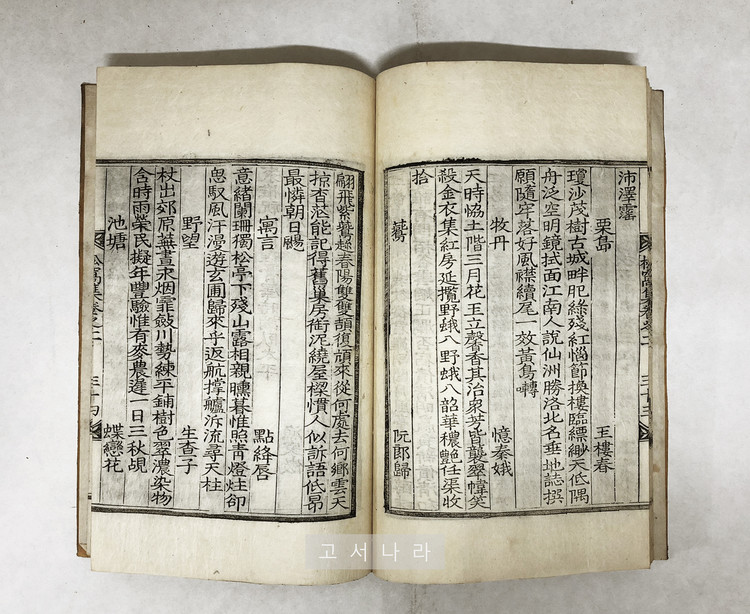 沛澤霶
栗島 玉樓春
瓊沙茂樹古城畔肥綠殘紅惱節換樓臨縹緲天低隅
舟泛空明鏡拭面江南人說仙洲勝洛北名垂地誌撰
願隨穿落好風襟續尾一效黃鳥囀
牧丹 憶秦娥
天時恊土階三月花王立馨香其冶衆芳皆襲翠幃笑
殺金衣集紅房延攬野蛾入野蛾入韶華穠艶任渠收
拾
鷰 阮郎歸
松窩集卷之二 三十三
翩飛紫鷰趂春陽雙雙頡復頏來從何處去何鄉雲天
掠杳茫能記得舊巢房銜泥繞屋樑慣人似訴語低昂
最憐朝日颺
寓言 點絳唇
意緖闌珊獨松亭下殘山露相親曛暮惟照靑燈炷却
思馭風汗漫遊玄圃歸來乎返航撑艫泝流尋天柱
野望 生査子
杖出郊原蕪晝永烟霏斂川勢練平鋪樹色翠濃染物
含時雨榮民擬年豐驗惟有麥農違一日三秋覘
池塘 蝶戀花
松窩集卷之二 三十四
고서나라